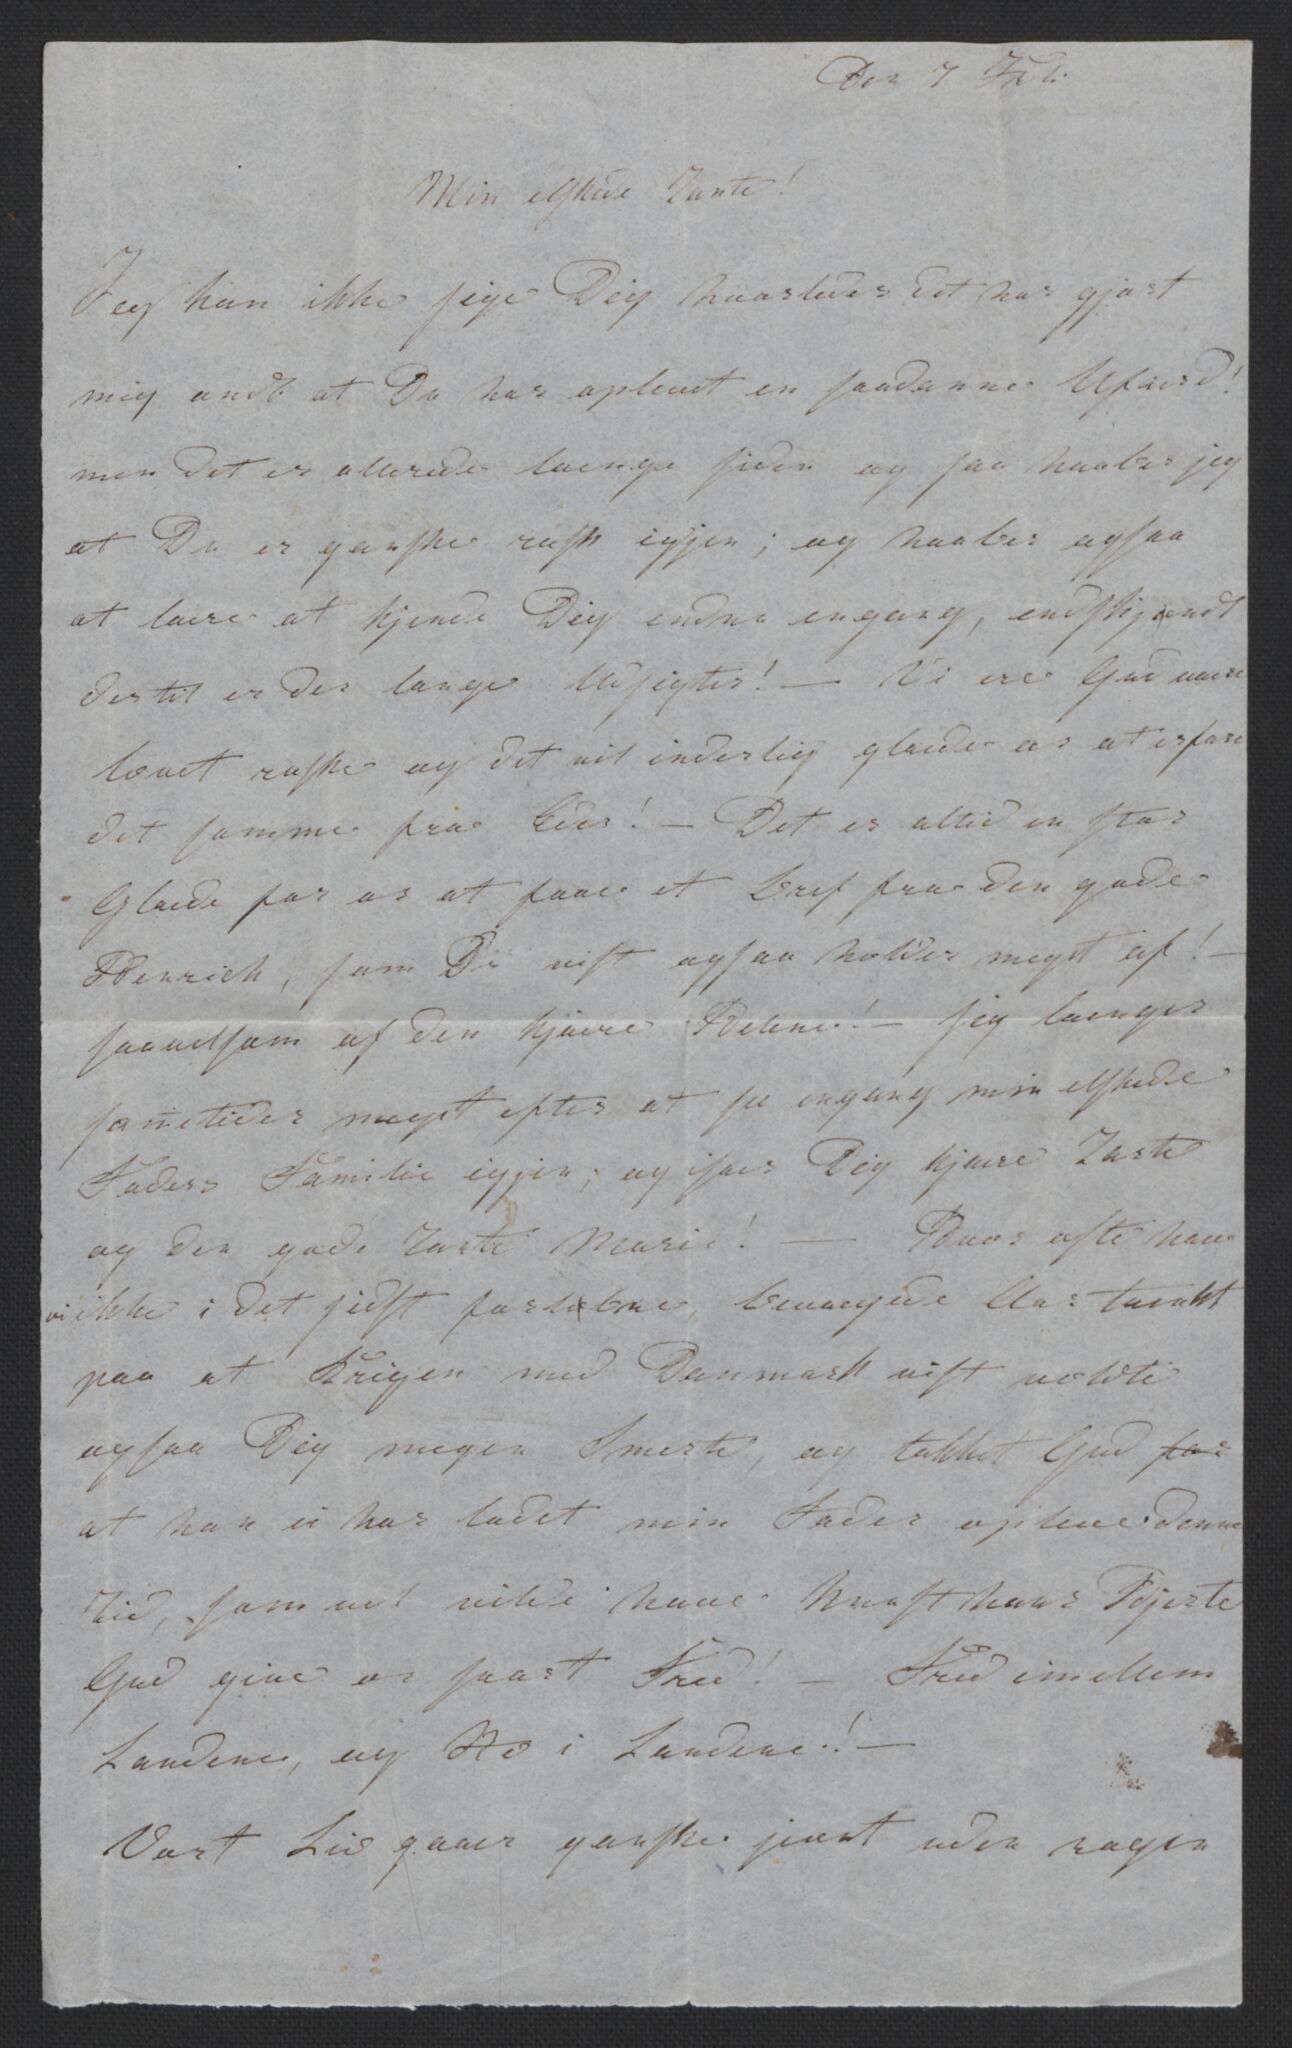 Den 7 Feb.
Min elskede Tante!
Jeg kan ikke sige Dig hvorledes det har gjort
mig ondt at Du har oplevet en saadanne Ufærd!
men det er allerede længe siden og saa haaber jeg
at Du er ganske rask igjen; og haaber ogsaa
at lære at kjende Dig endnu engang, endskjøndt
dertil er der lange Udsigter! — Vi ere Gud være
lovet raske og det vil inderlig glæde os at erfare
det samme fra Eder! — Det er altid en stor
Glæde for os at faae et Bref fra den gode
Henrich, som Du vist ogsaa holder meget af! —
saavelsom af den kjære Helene! — Jeg længes
sommetider meget efter at se engang min elskede
Faders Familie igjen; og især Dig kjære Tante
og den gode Tante Marie! — Hvor ofte have
vi ikke i det sidst forløbne, bevægede Aar tænkt
paa at Krigen med Danmark vist voldte
ogsaa Dig megen Smerte, og takket Gud for
at han ei har ladet min Fader opleve denne
Tid, som vel vilde have knust hans Hjerte
Gud give os snart Fred! — Fred imellem
Landene, og Ro i Landene! —
Vort Liv gaaer ganske jevnt uden nogen